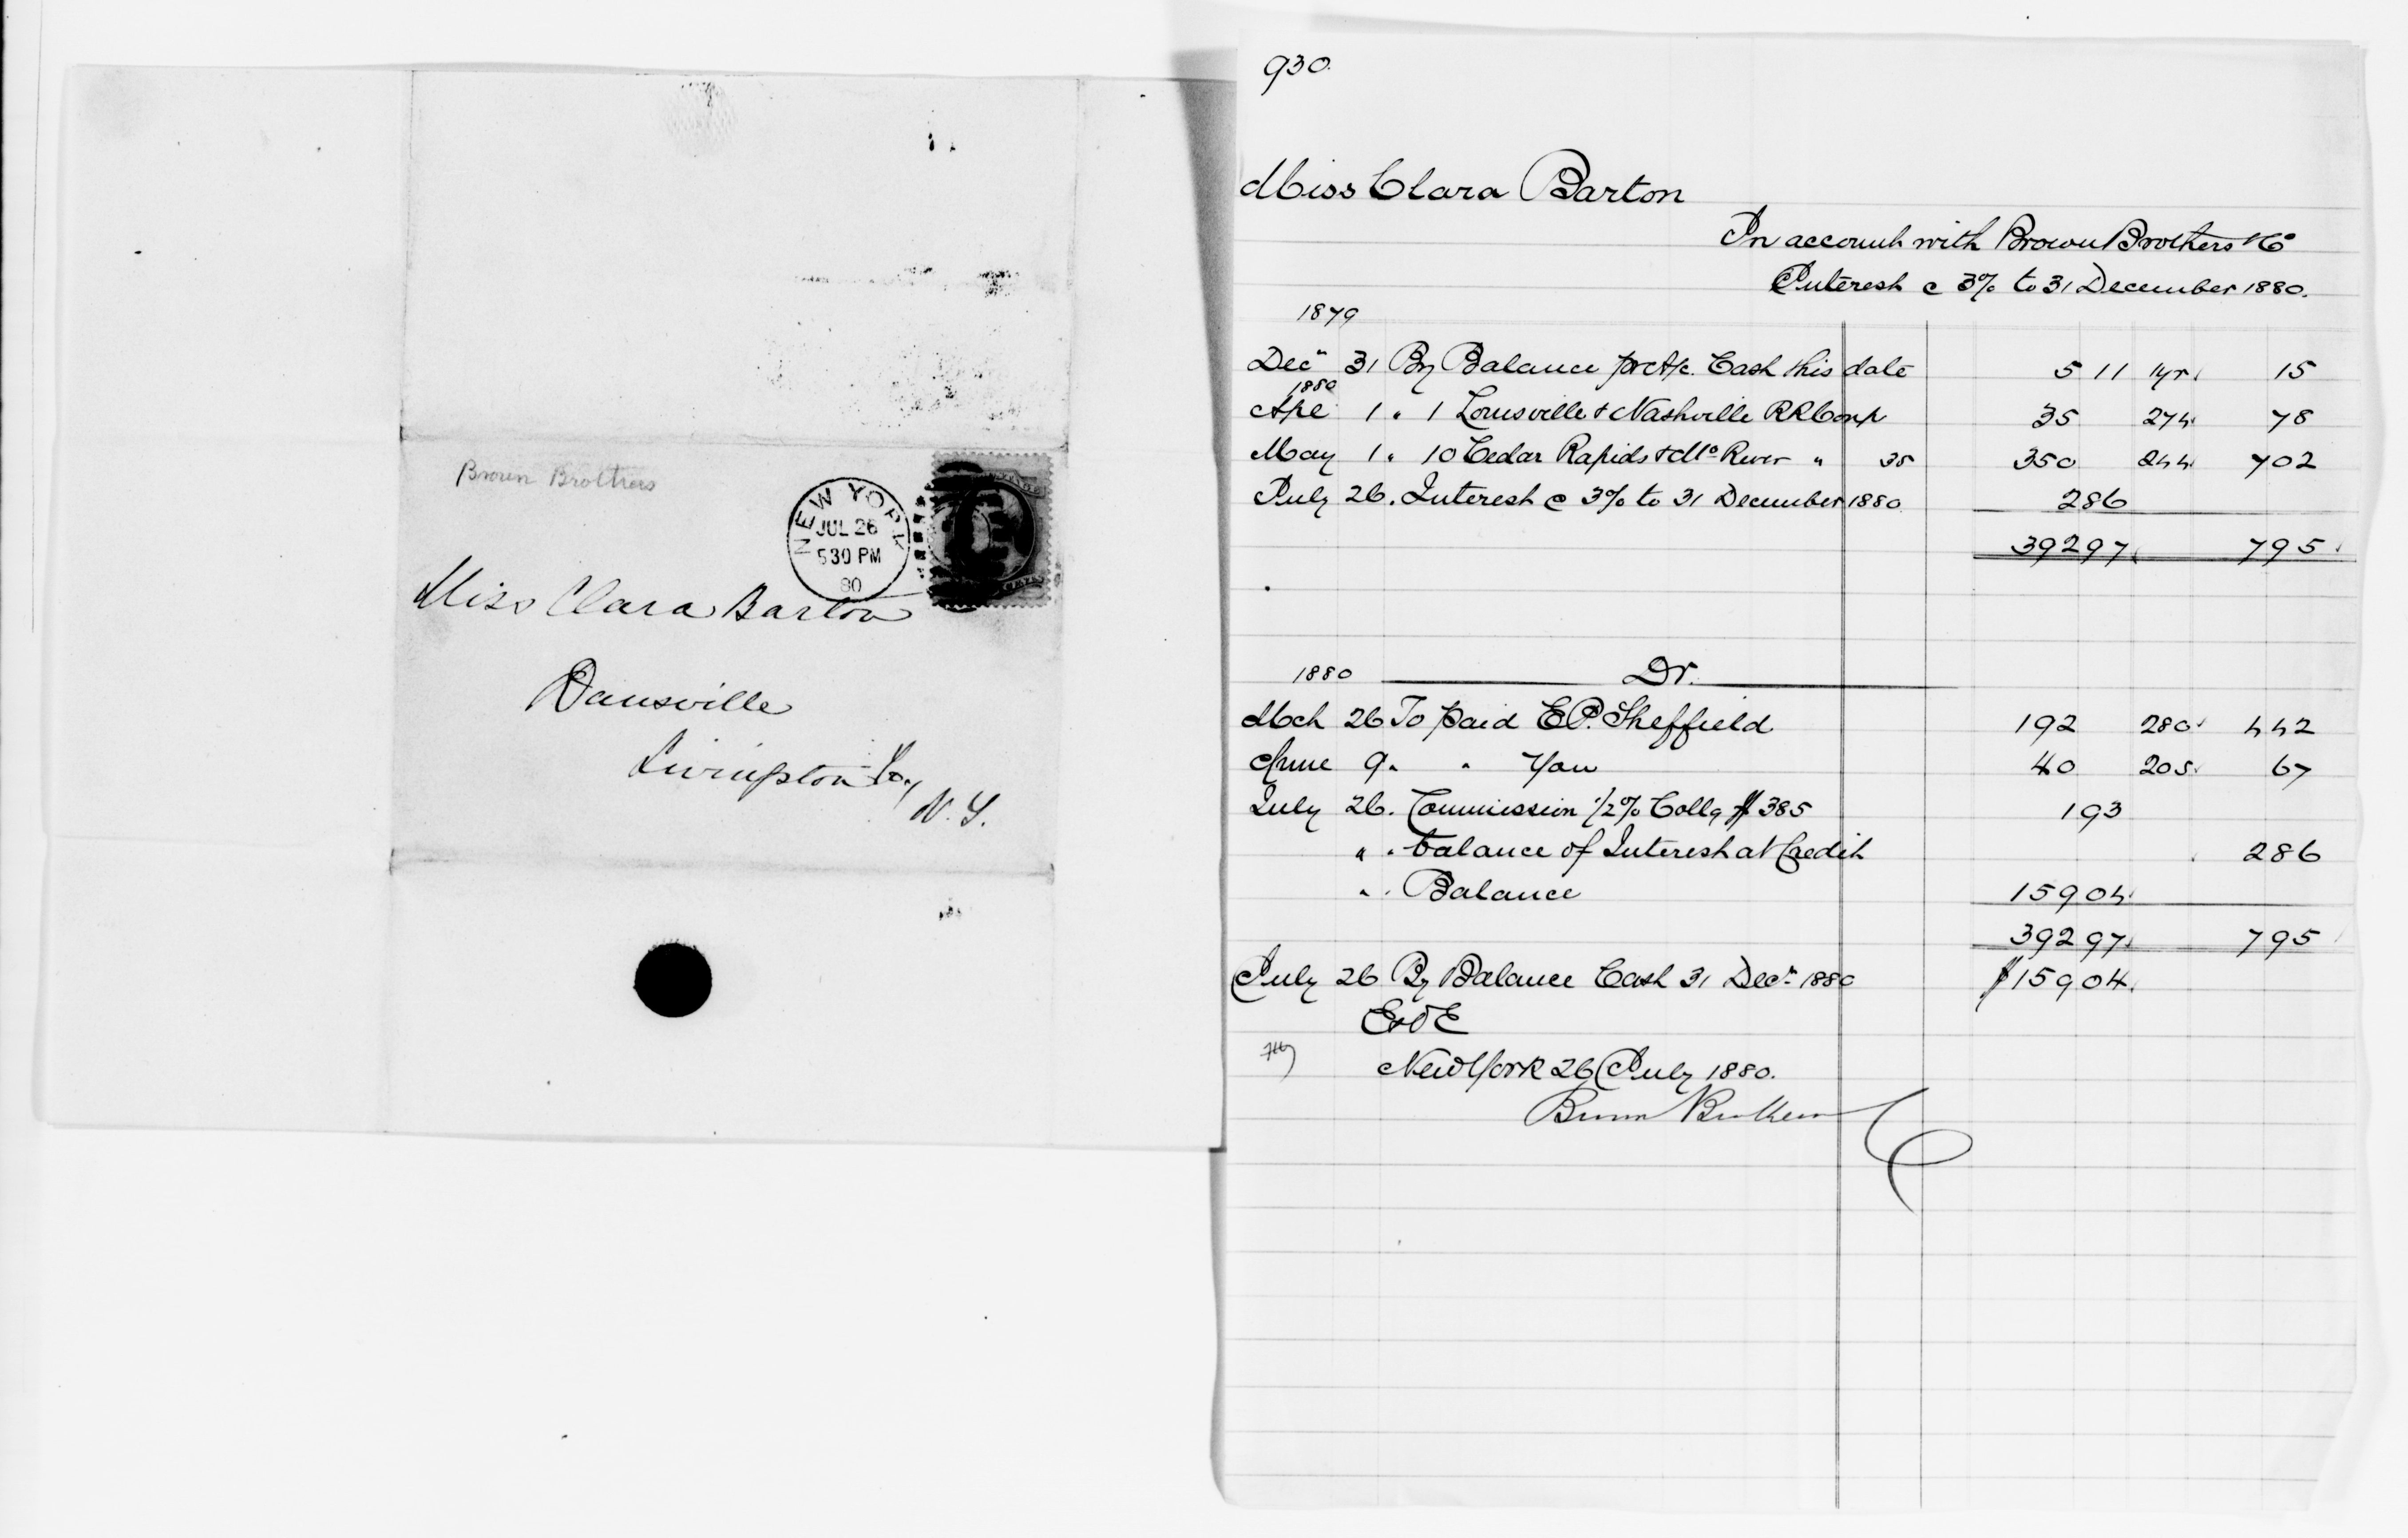 Brown Brothers
NEW YORK
JUL 26
530 PM
80
Miss Clara Barton
Dansville
Livingston Co,
N. Y.
930
Miss Clara Barton
In account with Brown Brothers & Co
Interest @ 3% to 31 December 1880.
1879
Decr 31 By Balance pr A/c. Cash this date 5 11 1yr. 15
1880
Apl 1 " 1 Louisville & Nashville RR Coup 35 274 78
May 1 " 10 Cedar Rapids & Mo River " 35 350 244 702
July 26. Interest @ 3% to 31 December 1880 2 86
392 97 795
1880 Dr.
Mch 26 To paid E.P. Sheffield 192 280 442
June 9 " " You 40 205 67
July 26. Commission 1/2% Collg $385 1 93
" . balance of Interest at Credit 286
" . Balance 159 04
392 97 795
July 26 By Balance Cash 31 Decr 1880 $159 04
E&OE
New York 26 July 1880.
Brown Brothers